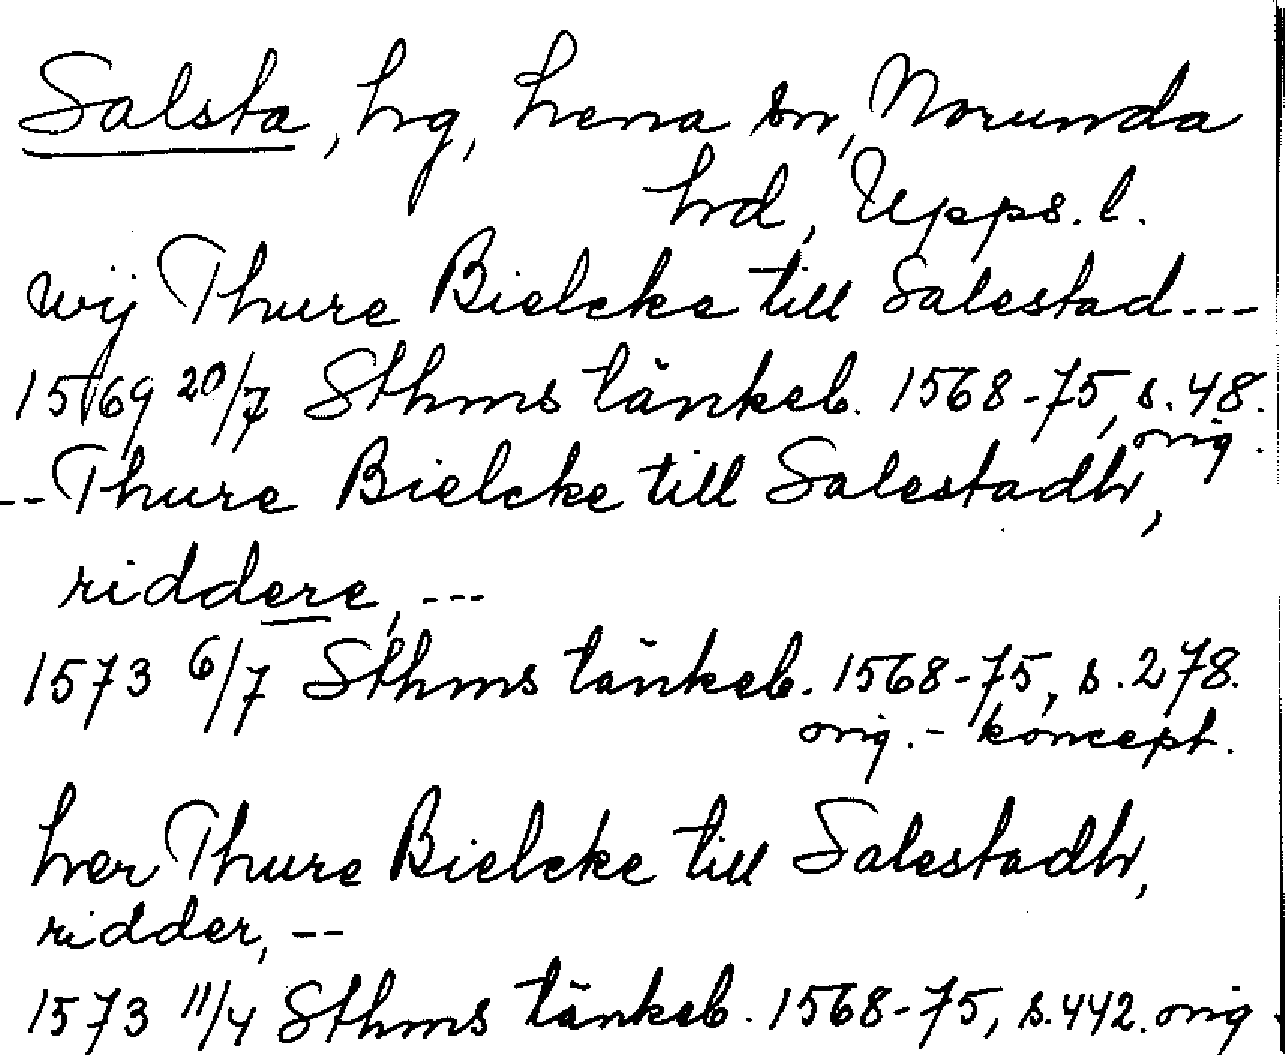 Salsta, hg, Lena sn, Norunda
hd, Upps. l.
wij Thure Bielcke till Salestad ---
1569 20/7 Sthms tänkeb. 1568-75, s. 48.
orig.
-- Thure Bielcke till Salestadh,
riddere, ---
1573 6/7 Sthms tänkeb. 1568-75, s. 278.
orig. - koncept.
her Thure Bielcke till Salestadh,
ridder, --
1573 11/4 Sthms tänkeb. 1568-75, s. 442. orig.